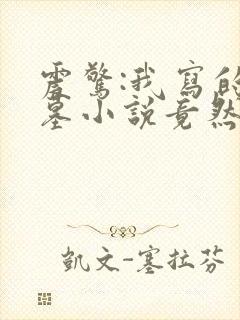 震驚:我寫的
墓小說竟然
凱文-塞拉芬